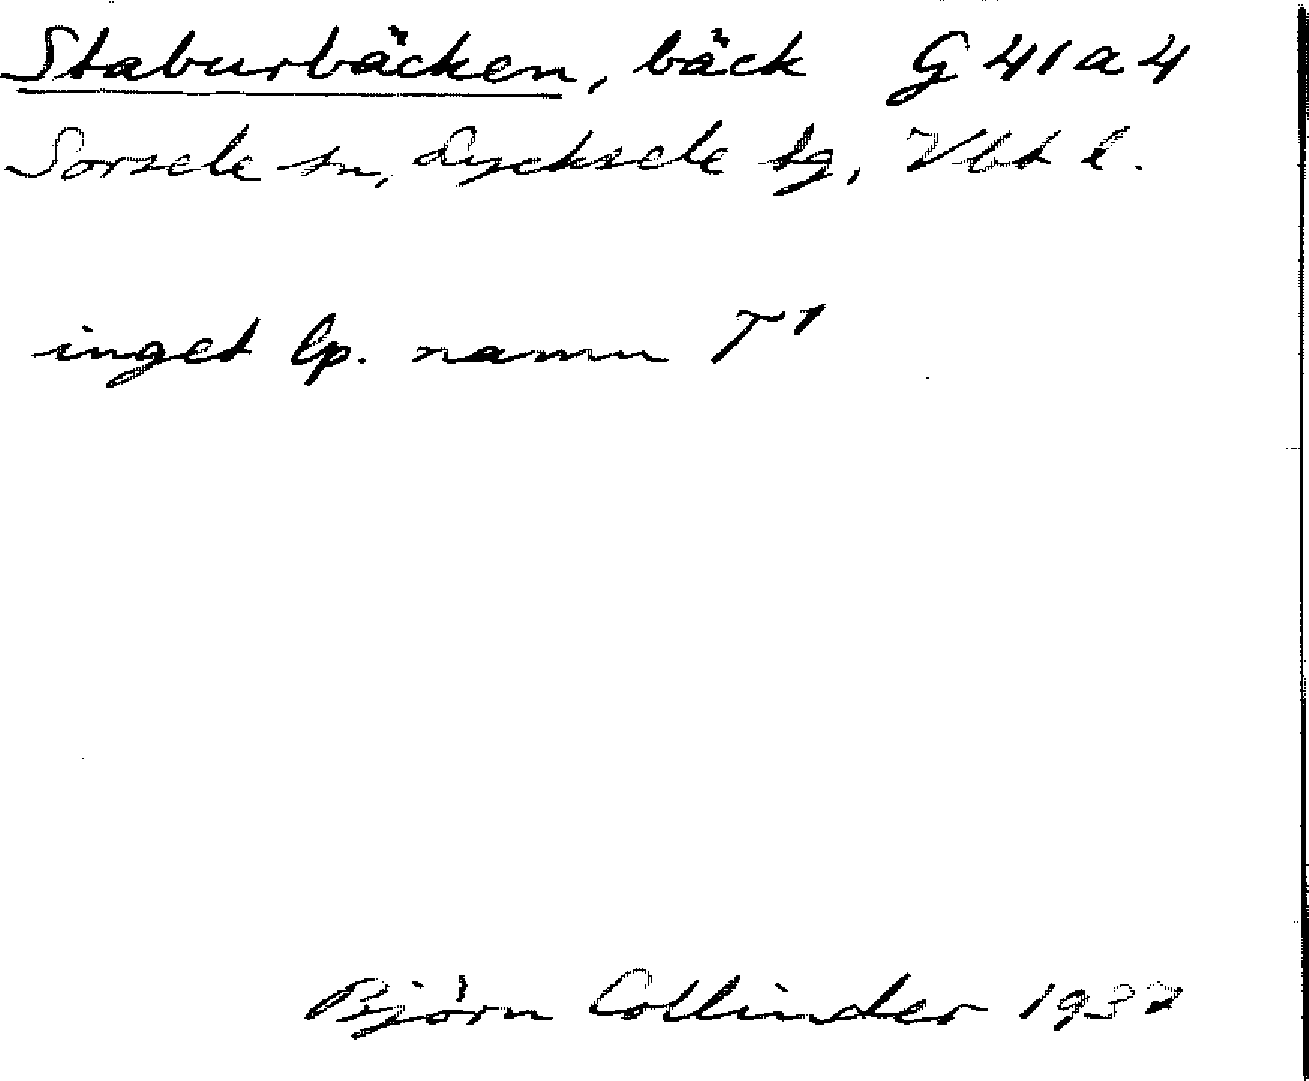 Staburbäcken, bäck G 41 a 4
Sorsele sn, Lycksele tg, Vbt l.
inget lp. namn T¹
Björn Collinder